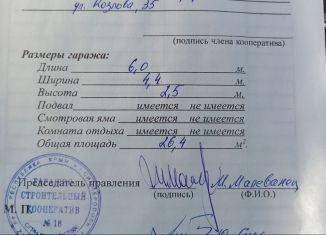 ул. Козлова, 35
(подпись члена кооператива)
Размеры гаража:
Длина 6,0 м.
Ширина 4,4 м.
Высота 2,5 м.
Подвал имеется не имеется
Смотровая яма имеется не имеется
Комната отдыха имеется не имеется
Общая площадь 26,4 м².
Председатель правления М. Мареванец
(подпись) (Ф.И.О.)
М. П.
СТРОИТЕЛЬНЫЙ
КООПЕРАТИВ
№ 18